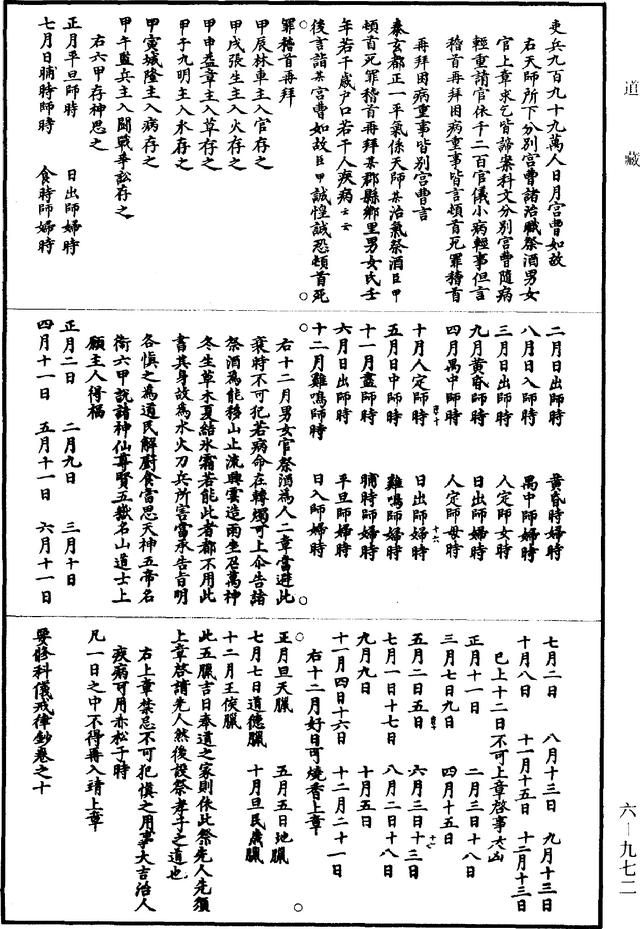 道藏
吏兵九百九十九萬人日月宮曹如故
右天師所下分別宮曹諸治職祭酒男女
官上章求乞皆諦案科文分別宮曹隨病
輕重請官依千二百官儀小病輕事但言
稽首再拜因病重事皆言頓首死罪稽首
再拜因病重事皆別宮曹言
泰玄都正一平氣係天師某治氣祭酒臣甲
頓首死罪稽首再拜某郡縣鄉里男女氏壬
年若干歲户口若干人疾病云云
後言請某宮曹如故臣甲誠惶誠恐頓首死
罪稽首再拜
甲辰林車主入官存之
甲戌張生主入火存之
甲申益章主入草存之
甲子九明主入水存之
甲寅城隍主入病存之
甲午監兵主入鬭戰爭訟存之
右六甲存神思之
正月平旦師時 日出師婦時
七月日晡時師時 食時師婦時
二月日出師時 黃昏時婦時
八月日入師時 禺中師婦時
三月日出師時 入定師女時
九月黃昏師時 日出師婦時
四月禺中師時 人定師母時
十月人定師時 日出師婦時
五月日中師時 雞鳴師婦時
十一月盡師時 晡時師婦時
六月日出師時 平旦師婦時
十二月雞鳴師時 日入師婦時
右十二月男女官祭酒為人二章當避此
衰時不可犯若病命在轉燭可上命告諸
祭酒為能移山止流興雲造雨坐召萬神
冬生草木夏結氷霜若能此者都不用此
書其身故為水火刀兵所害當承告旨明
各慎之為道民解厨食當思天神五帝名
衛六甲説諸神仙尊賢五嶽名山道士上
願主人得福
正月二日 二月九日 三月十日
四月十一日 五月十一日 六月十一日
七月二日 八月十三日 九月十三日
十月八日 十一月十五日 十二月十三日
已上十二日不可上章啓事大凶
正月十一日 二月三日十八日
三月七日九日 四月十五日
五月二日五日 六月三日十三日
七月一日十七日 八月二日十八日
九月九日 十月五日
十一月四日十六日 十二月二十一日
右十二月好日可燒香上章
正月旦天臘 五月五日地臘
七月七日道德臘 十月旦民歲臘
十二月王侯臘
此五臘吉日奉道之家則依此祭先人先須
上章啓請先人然後設祭孝子之道也
右上章禁忌不可犯慎之用事大吉治人
疾病可用亦松子時
凡一日之中不得再入靖上章
要修科儀戒律鈔卷之十
六一九七二